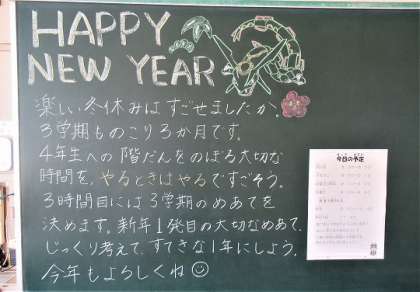 HAPPY
NEW YEAR
楽しい冬休みはすごせましたか。
3学期ものこり3か月です。
4年生への階だんをのぼる大切な
時間を、やるときはやるですごそう。
3時間目には3学期のめあてを
決めます。新年1発目の大切なめあて、
じっくり考えて、すてきな1年にしよう。
今年もよろしくね
今日の予定